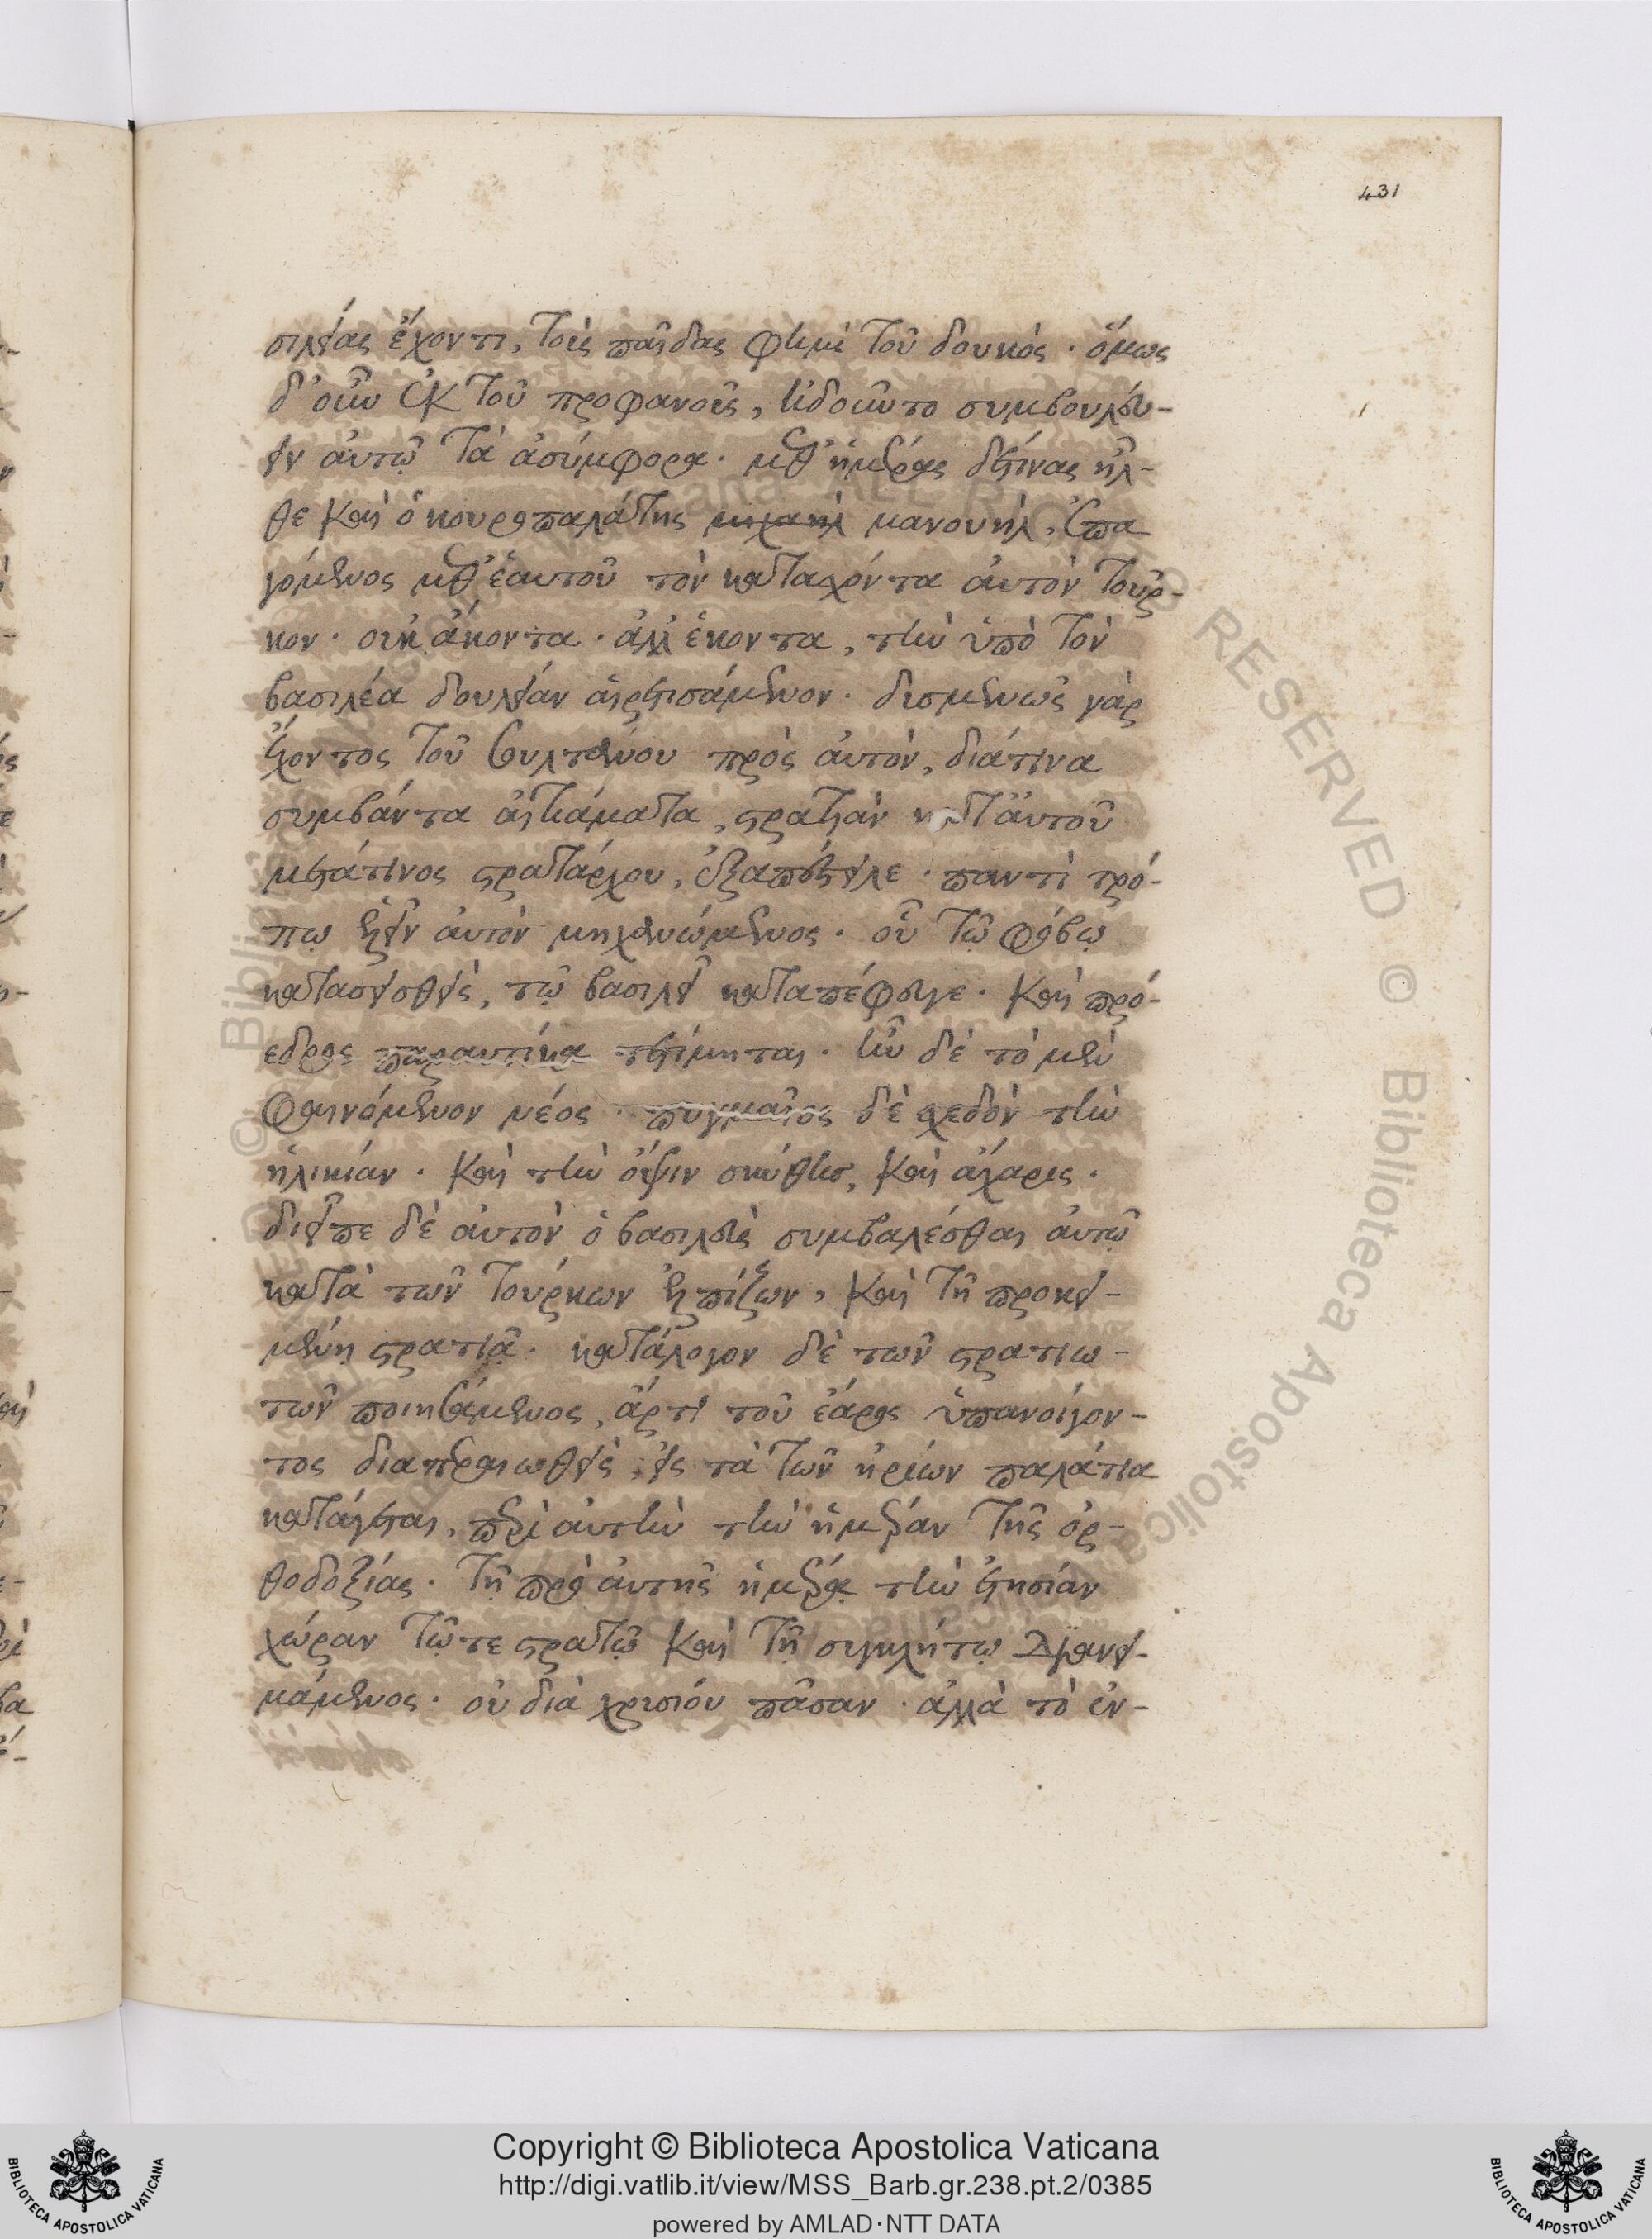 431
σιλείας ἔχοντι, τοὺς παῖδας φημὶ τοῦ δουκός· ὅμως
δ' οὖν ἐκ τοῦ προφανοῦς, ᾐδοῦντο συμβουλεύ-
ειν αὐτῷ τὰ ἀσύμφορα. μεθ' ἡμέρας δέ τινας ἦλ-
θε καὶ ὁ κουροπαλάτης μιχαὴλ μανουὴλ, ἐπα
γόμενος μεθ' ἑαυτοῦ τὸν κατασχόντα αὐτὸν τοῦρ-
κον· οὐκ ἄκοντα· ἀλλ' ἑκόντα, τὴν ὑπὸ τὸν
βασιλέα δουλείαν αἱρετισάμενον. δυσμενῶς γὰρ
ἔχοντος τοῦ σουλτάνου πρὸς αὐτὸν, διά τινα
συμβάντα αἰτιάματα, στρατιὰν κατ' αὐτοῦ
μετά τινος στρατάρχου, ἐξαπέστειλε· παντὶ τρό-
πῳ ἑλεῖν αὐτὸν μηχανώμενος. οὗ τῷ φόβῳ
κατασεισθεὶς, τῷ βασιλεῖ καταπέφευγε. καὶ πρό-
εδρος παραυτίκα τετίμηται. ἦν δὲ τὸ μὲν
φαινόμενον νέος· πυγμαῖος δὲ σχεδὸν τὴν
ἡλικίαν. καὶ τὴν ὄψιν σκύθης, καὶ ἄχαρις.
διεῖπε δὲ αὐτὸν ὁ βασιλεὺς συμβαλέσθαι αὐτῷ
κατὰ τῶν τούρκων ἐλπίζων, καὶ τῇ προκει-
μένῃ στρατιᾷ. κατάλογον δὲ τῶν στρατιω-
τῶν ποιησάμενος, ἄρτι τοῦ ἔαρος ὑπανοίγον-
τος διαπεραιωθεὶς, εἰς τὰ τῶν ἡρίων παλάτια
κατάγεται, περὶ αὐτὴν τὴν ἡμέραν τῆς ὀρ-
θοδοξίας. τῇ πρὸ αὐτῆς ἡμέρᾳ τὴν ἐτησίαν
χώραν τῷ τε στρατῷ καὶ τῇ συγκλήτῳ διανει-
μάμενος. οὐ διὰ χρυσίου πᾶσαν· ἀλλὰ τὸ ἐν-
Copyright © Biblioteca Apostolica Vaticana
http://digi.vatlib.it/view/MSS_Barb.gr.238.pt.2/0385
powered by AMLAD·NTT DATA